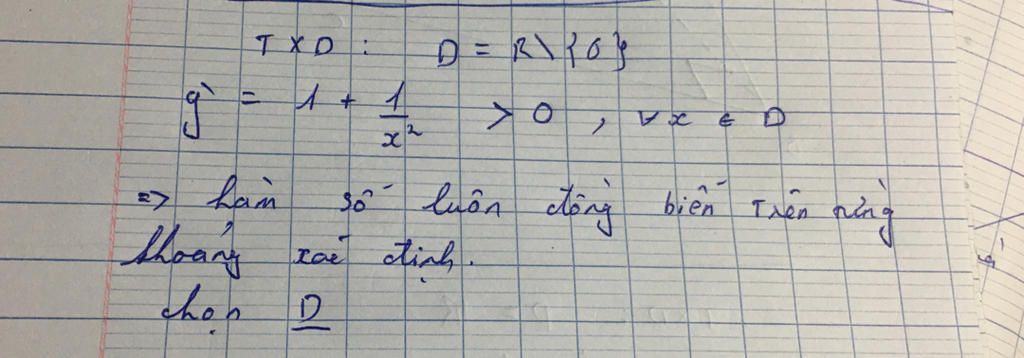 TXD : D = R\{0}
y' = 1 + 1/x² > 0 , ∀x ∈ D
=> hàm số luôn đồng biến trên từng
khoảng xác định.
chọn D